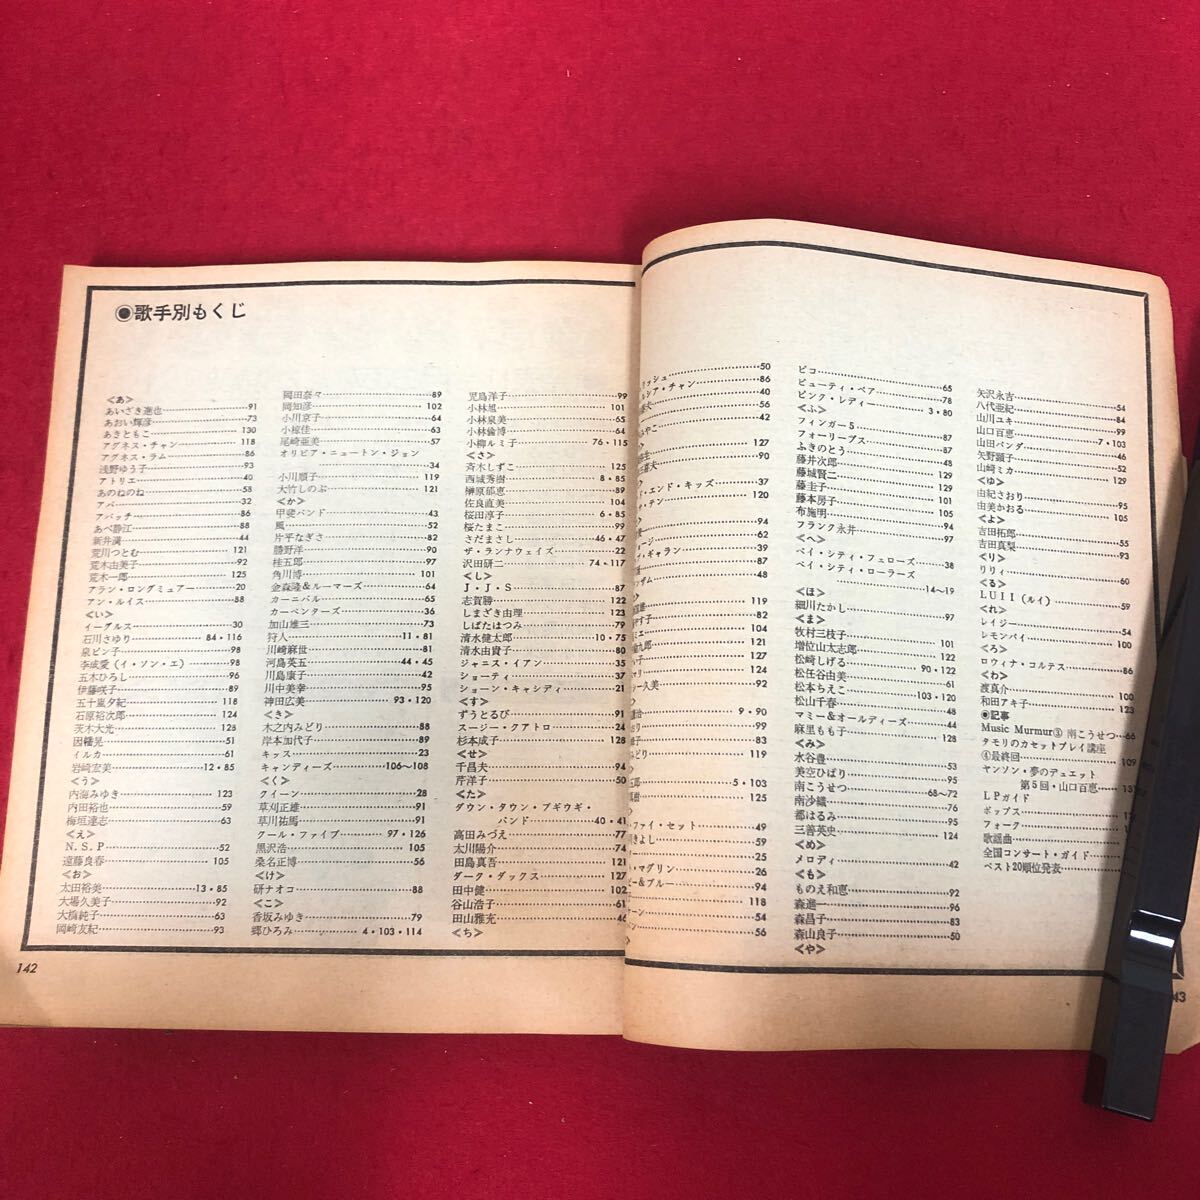 ◉歌手別もくじ
<あ>
あいざき進也……91
あおい輝彦……73
あきともこ……130
アグネス・チャン……118
アグネス・ラム……86
浅野ゆう子……93
アトリエ……40
あのねのね……58
アバ……32
アパッチ……86
あべ静江……88
新井満……44
荒川つとむ……121
荒木由美子……92
荒木一郎……125
アラン・ロングミュアー……20
アン・ルイス……88
<い>
イーグルス……30
石川さゆり……84・116
泉ピン子……98
李成愛(イ・ソン・エ)……98
五木ひろし……96
伊藤咲子……89
五十嵐夕紀……118
石原裕次郎……124
茨木大光……128
因幡晃……51
イルカ……61
岩崎宏美……12・85
<う>
内海みゆき……123
内田裕也……59
梅垣達志……63
<え>
N.S.P……52
遠藤良春……105
<お>
太田裕美……13・85
大場久美子……92
大橋純子……63
岡崎友紀……93
岡田奈々……89
岡知彦……102
小川京子……64
小椋佳……63
尾崎亜美……57
オリビア・ニュートン・ジョン
……34
小川順子……119
大竹しのぶ……121
<か>
甲斐バンド……43
風……52
片平なぎさ……82
勝野洋……90
桂五郎……97
角川博……101
金森隆&ルーマーズ……64
カーニバル……65
カーペンターズ……36
加山雄三……73
狩人……11・81
川崎麻世……81
河島英五……44・45
川島康子……42
川中美幸……95
神田広美……93・120
<き>
木之内みどり……88
岸本加代子……89
キッス……23
キャンディーズ……106〜108
<く>
クイーン……28
草刈正雄……91
草川祐馬……91
クール・ファイブ……97・126
黒沢浩……105
桑名正博……56
<け>
研ナオコ……88
<こ>
香坂みゆき……79
郷ひろみ……4・103・114
児島洋子……99
小林旭……101
小林泉美……65
小林倫博……64
小柳ルミ子……76・115
<さ>
斉木しずこ……125
西城秀樹……8・85
榊原郁恵……89
佐良直美……104
桜田淳子……6・85
桜たまこ……99
さだまさし……46・47
ザ・ランナウェイズ……22
沢田研二……74・117
<し>
J・J・S……87
志賀勝……122
しまざき由理……123
しばたはつみ……79
清水健太郎……10・75
清水由貴子……80
ジャニス・イアン……35
ショーティ……37
ショーン・キャシディ……21
<す>
ずうとるび……91
スージー・クアトロ……24
杉本成子……128
<せ>
千昌夫……94
芹洋子……50
<た>
ダウン・タウン・ブギウギ・
バンド……40・41
高田みづえ……77
太川陽介……74
田島真吾……121
ダーク・ダックス……127
田中健……102
谷山浩子……61
田山雅充……46
<ち>
142
リッシュ……50
ルシア・チャン……86
……56
みやこ……42
……127
……90
ド・エンド・キッズ……37
・テン……120
……94
ージ……62
プ・ギャラン……39
……87
ンザム……48
……119
やす子……82
ミエ……104
九郎……100
い子……127
マリ……124
シー久美……92
……9・90
……99
……83
みどり……119
五郎……5・103
……125
・ファイ・セット……49
きよし……59
ー……25
ト・マグリン……26
ビー&ブルー……94
……118
ーン……54
……56
ピコ……65
ビューティ・ペア……78
ピンク・レディー……3・80
<ふ>
フィンガー5……87
フォーリーブス……87
ふきのとう……48
藤井次郎……129
藤城賢二……129
藤圭子……101
藤本房子……105
布施明……94
フランク永井……97
<へ>
ベイ・シティ・フェローズ……38
ベイ・シティ・ローラーズ
……14〜19
<ほ>
細川たかし……97
<ま>
牧村三枝子……101
増位山太志郎……122
松崎しげる……90・122
松任谷由美……61
松本ちえこ……103・120
松山千春……48
マミー&オールディーズ……44
麻里もも子……128
<み>
水谷豊……53
美空ひばり……95
南こうせつ……68〜72
南沙織……76
都はるみ……95
三善英史……124
<め>
メロディ……42
<も>
ものえ和恵……92
森進一……96
森昌子……83
森山良子……50
<や>
矢沢永吉……54
八代亜紀……84
山川ユキ……99
山口百恵……7・103
山田パンダ……46
矢野顕子……52
山崎ミカ……129
<ゆ>
由紀さおり……95
由美かおる……105
<よ>
吉田拓郎……55
吉田真梨……93
<り>
リリィ……60
<る>
LUII(ルイ)……59
<れ>
レイジー……54
レモンパイ……100
<ろ>
ロウィナ・コルテス……86
<わ>
渡真介……100
和田アキ子……123
◉記事
Music Murmur③南こうせつ…66
タモリのカセットプレイ講座
④最終回……109
ヤンソン・夢のデュエット
第5回・山口百恵……
LPガイド
ポップス……
フォーク……
歌謡曲……
全国コンサート・ガイド……
ベスト20順位発表……
43